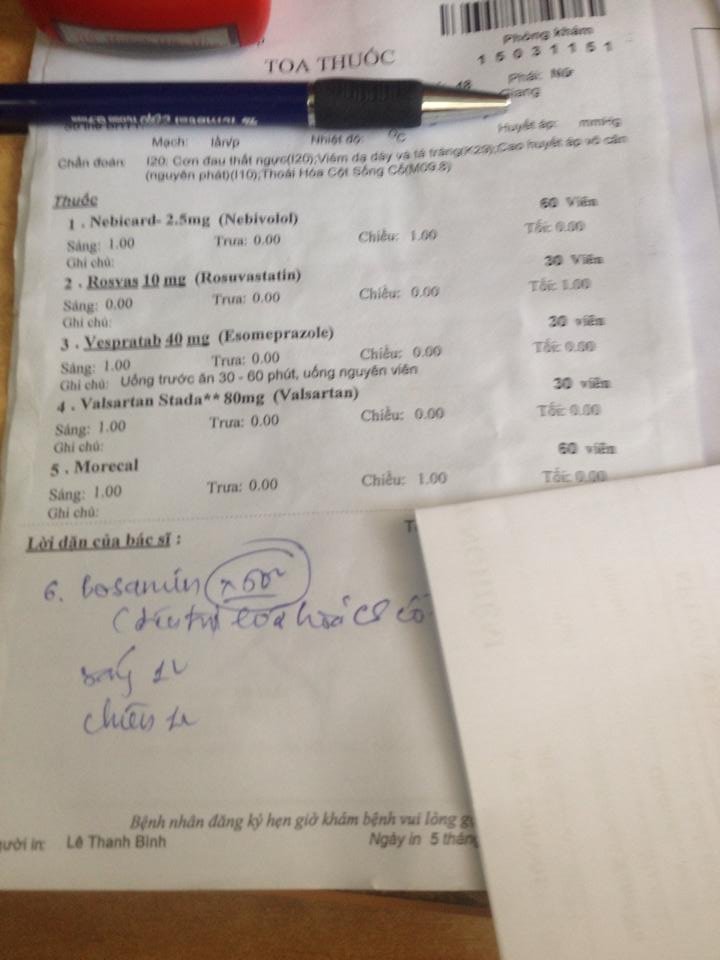 TOA THUỐC
Phòng khám
1 5 0 3 1 1 5 1
Phái: Nữ
Giang
Mạch: lần/p Nhiệt độ: °C Huyết áp: mmHg
Chẩn đoán: I20: Cơn đau thắt ngực(I20);Viêm dạ dày và tá tràng(K29);Cao huyết áp vô căn
(nguyên phát)(I10);Thoái Hóa Cột Sống Cổ(M09.8)
Thuốc
1 . Nebicard- 2.5mg (Nebivolol) 60 Viên
Sáng: 1.00 Trưa: 0.00 Chiều: 1.00 Tối: 0.00
Ghi chú:
2 . Rosvas 10 mg (Rosuvastatin) 30 Viên
Sáng: 0.00 Trưa: 0.00 Chiều: 0.00 Tối: 1.00
Ghi chú:
3 . Vespratab 40 mg (Esomeprazole) 30 viên
Sáng: 1.00 Trưa: 0.00 Chiều: 0.00 Tối: 0.00
Ghi chú: Uống trước ăn 30 - 60 phút, uống nguyên viên
4 . Valsartan Stada** 80mg (Valsartan) 30 viên
Sáng: 1.00 Trưa: 0.00 Chiều: 0.00 Tối: 0.00
Ghi chú:
5 . Morecal 60 viên
Sáng: 1.00 Trưa: 0.00 Chiều: 1.00 Tối: 0.00
Ghi chú:
Lời dặn của bác sĩ :
6. Bosamin x 60v
sáng 1v
chiều 1v
Bệnh nhân đăng ký hẹn giờ khám bệnh vui lòng
người in: Lê Thanh Bình Ngày in 5 thán